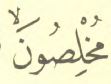 مُخْلِصُونَ ۙ